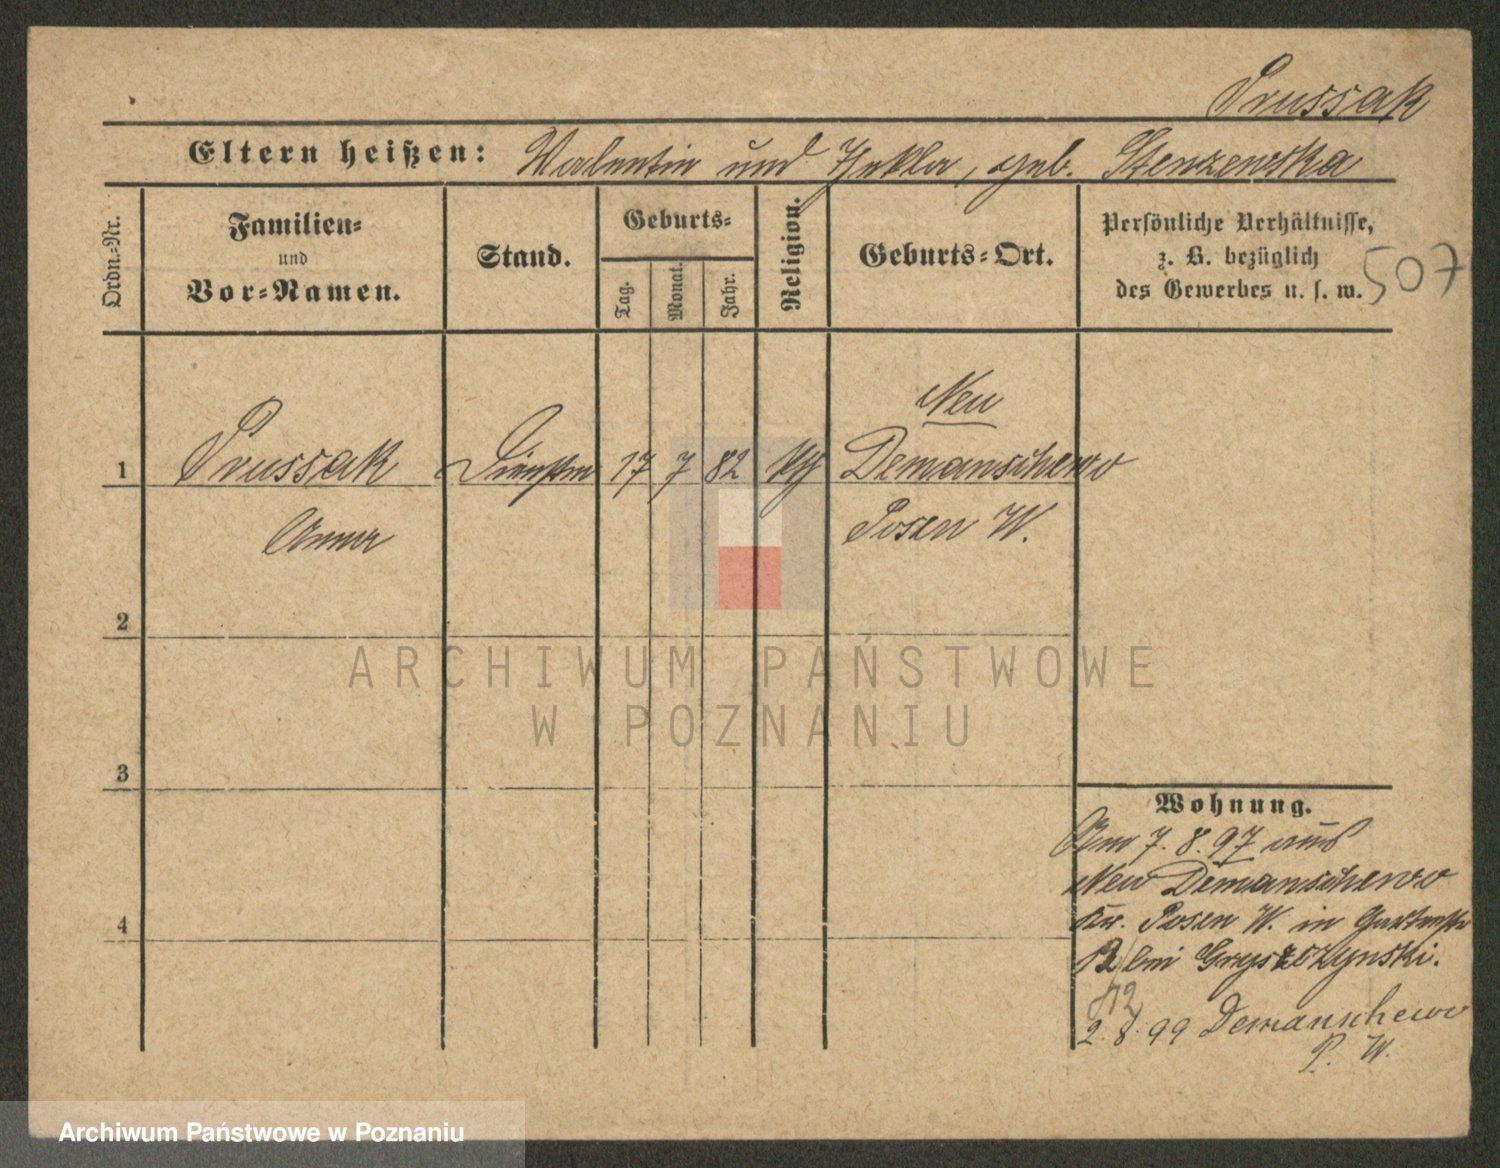 Prussak
Eltern heißen: Valentin und Thekla, geb. Stenzewska
Ordn.-Nr.
Familien-
und
Vor-Namen.
Stand.
Geburts-
Tag.
Monat.
Jahr.
Religion.
Geburts-Ort.
Persönliche Verhältnisse,
z. B. bezüglich
des Gewerbes u. s. w.
507
Neu
1 Prussak Dienstm 17 7 82 kth Demanschewo
Anna Posen W.
2
ARCHIWUM PAŃSTWOWE
W POZNANIU
3
Wohnung.
Am 7. 8. 97 aus
Neu Demanschewo
Kr. Posen W. in Gartenstr
bei
4
12
2. 8. 99 Demanschewo
P. W.
Archiwum Państwowe w Poznaniu